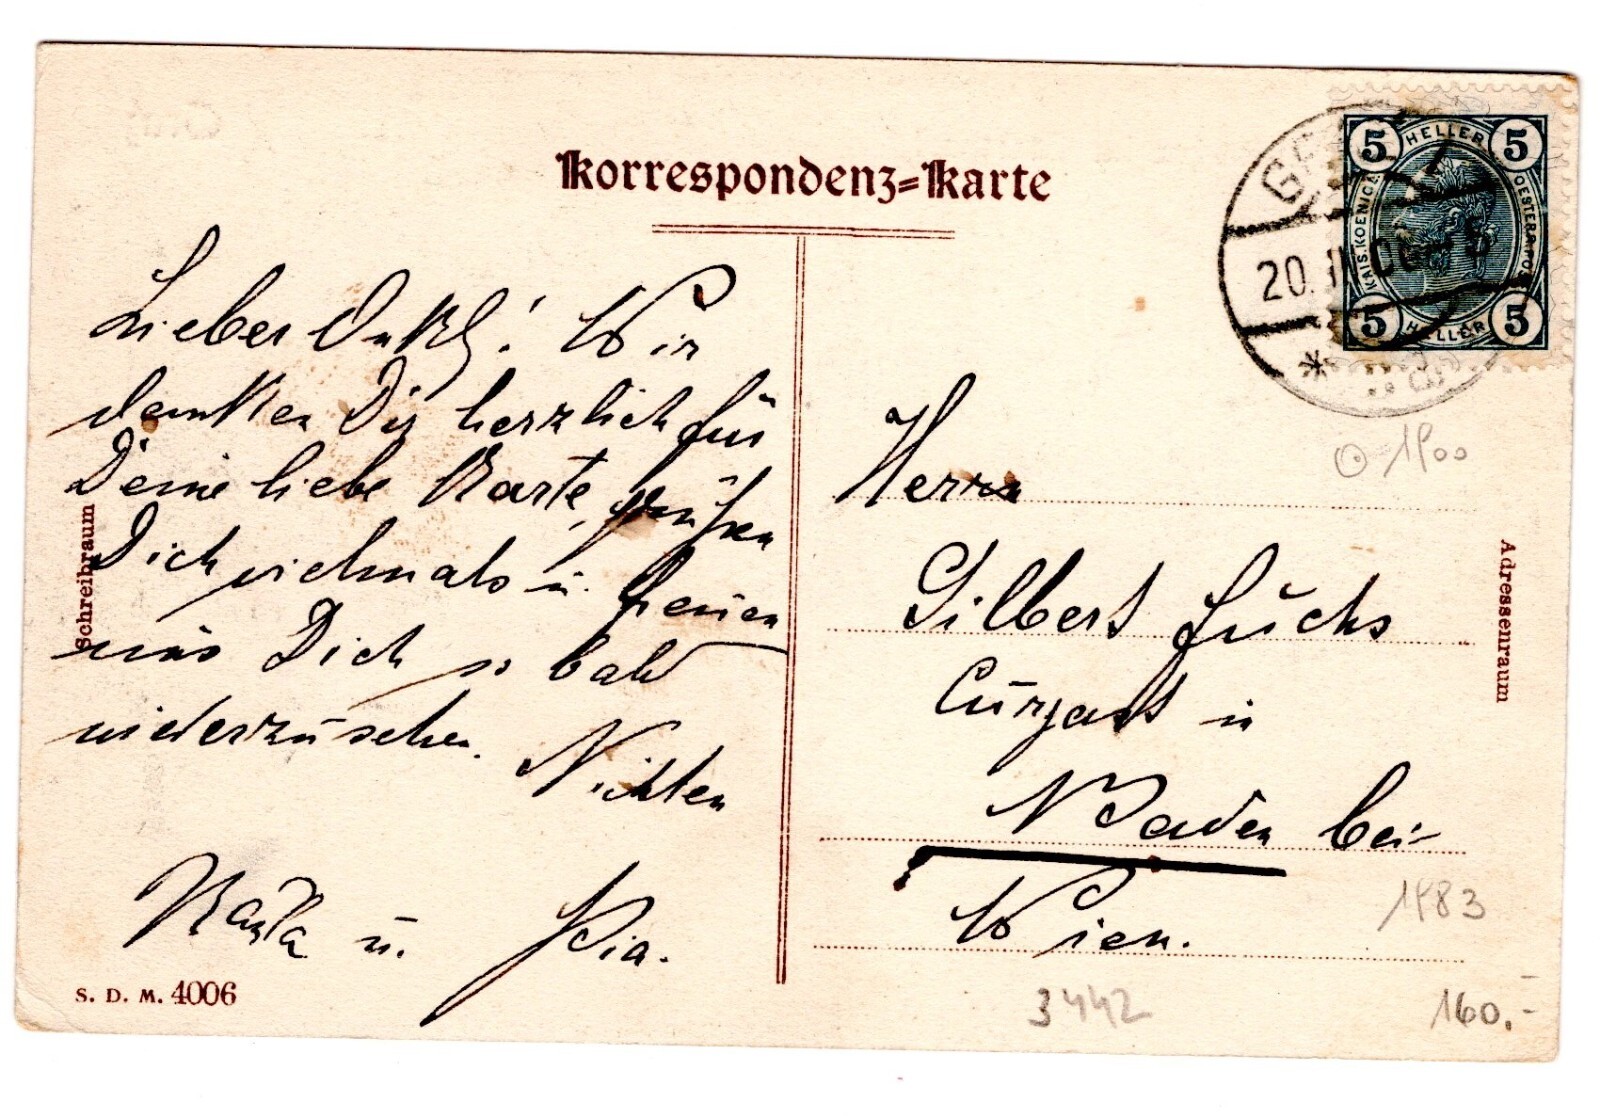 Korrespondenz-Karte
5 HELLER 5
KAIS. KOENIGL.
OESTERR. POST
5 HELLER 5
20.
Lieber Onkel! Wir
danken Dir herzlich für
Deine liebe Karte, grüßen
Dich vielmals u. freuen
uns Dich so bald
wiederzusehen. Nichten
u. Pia.
Schreibraum
Herrn
Gilbert Fuchs
Curgast in
Baden bei
Wien.
Adressenraum
S. D. M. 4006
1900
1983
3442
160.-